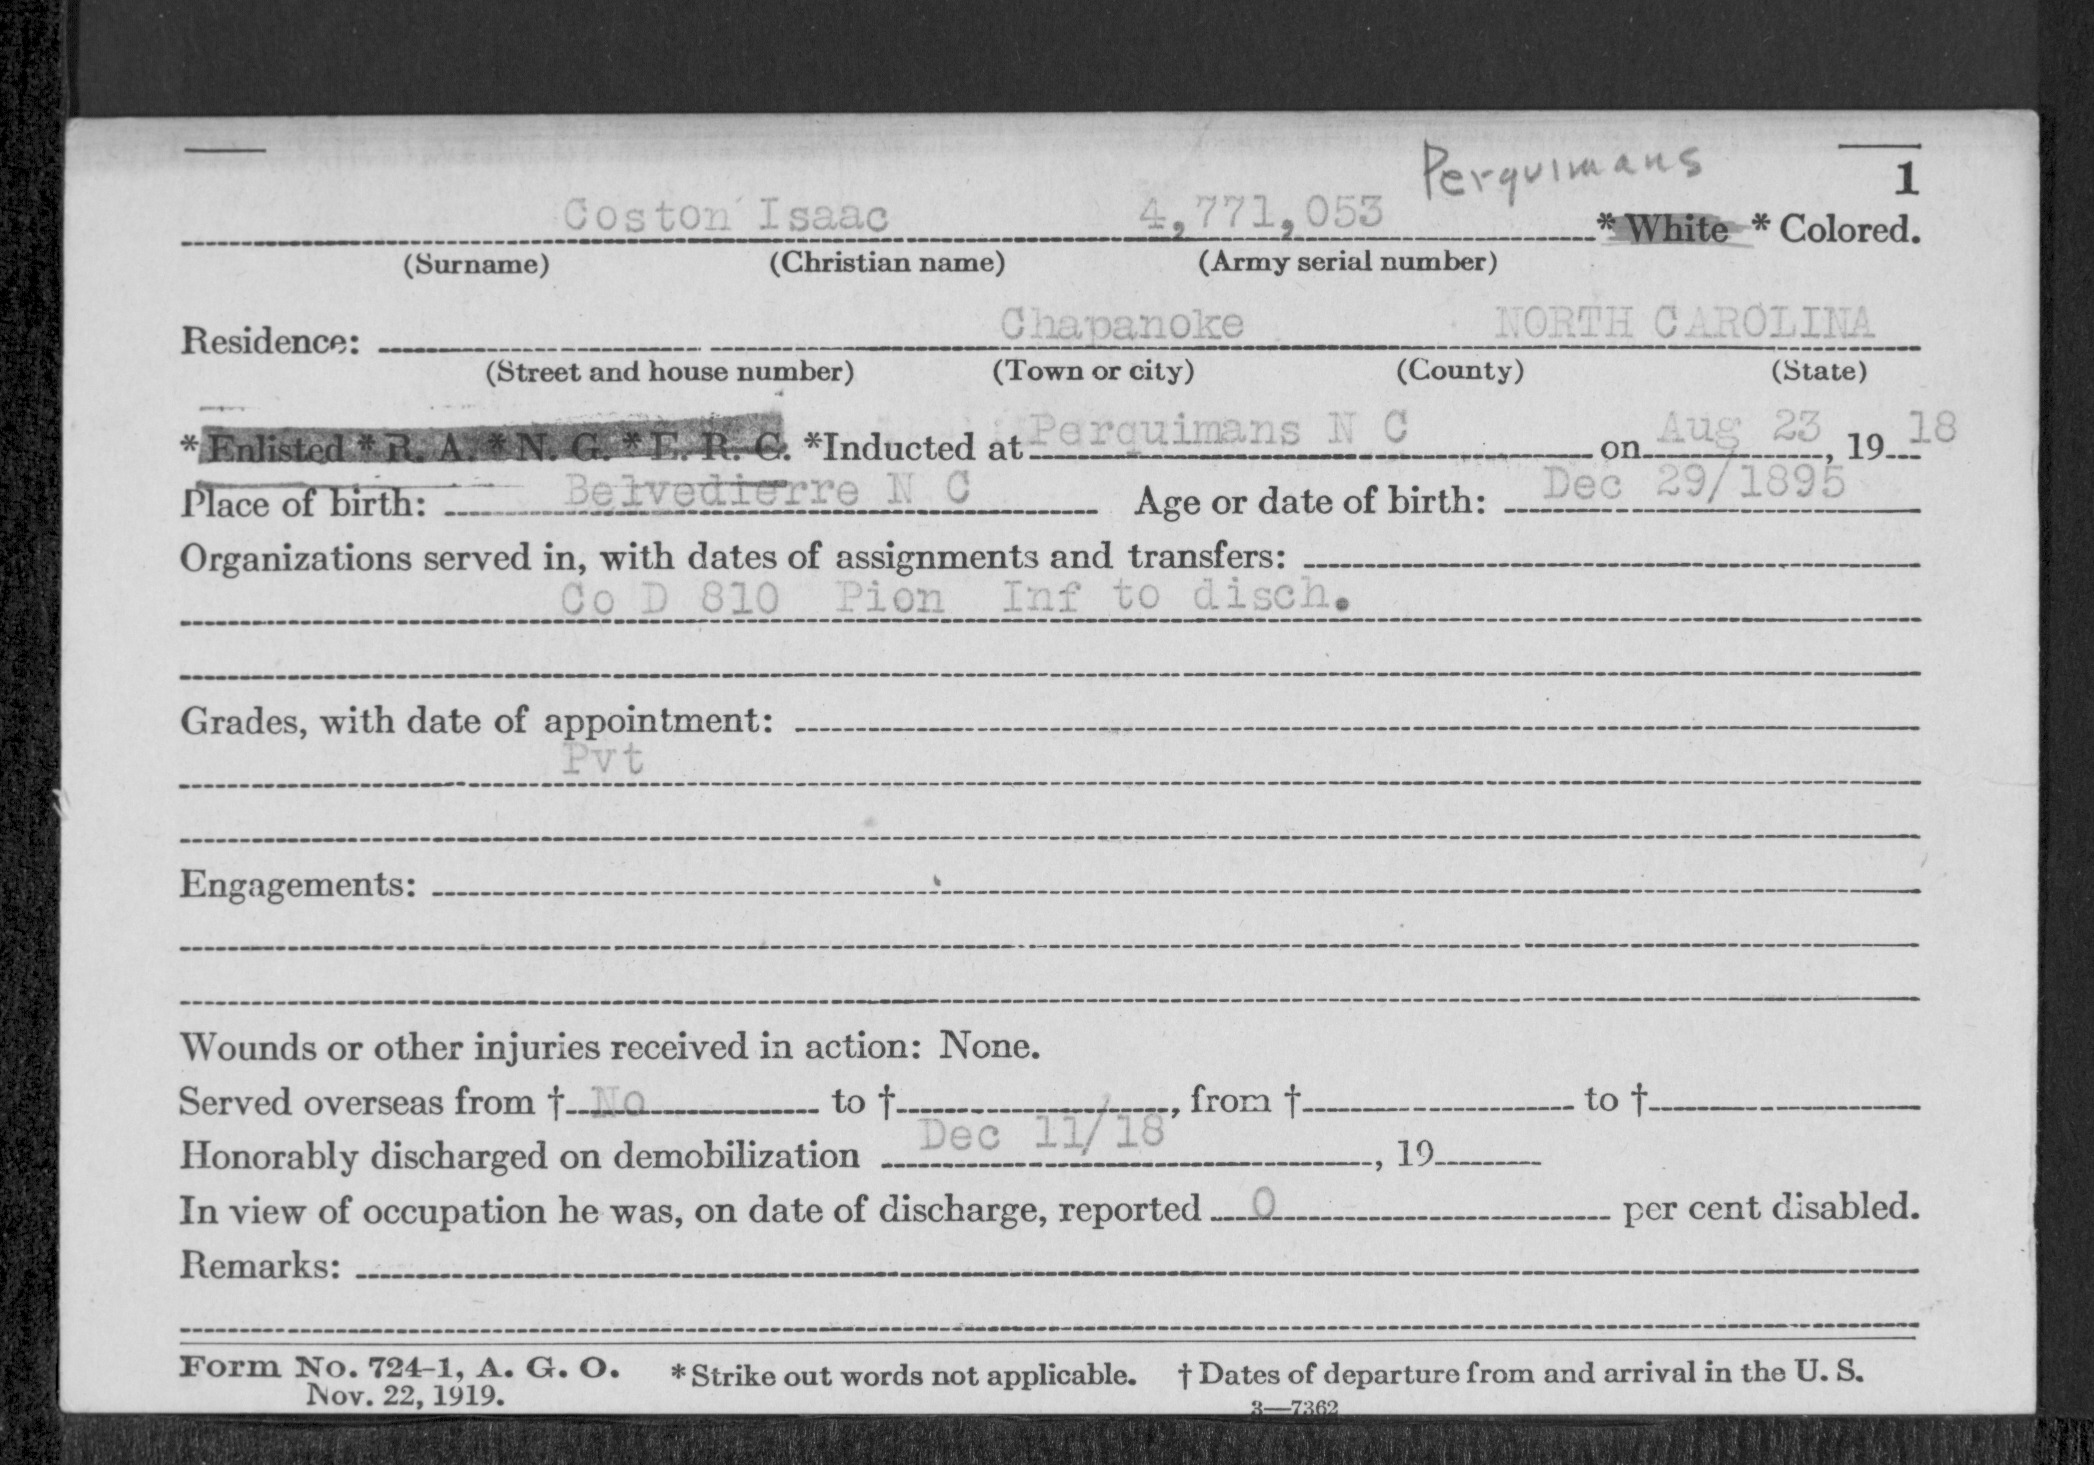 Perquimans
1
Coston Isaac 4,771,053 * White * Colored.
(Surname) (Christian name) (Army serial number)
Residence: Chapanoke NORTH CAROLINA
(Street and house number) (Town or city) (County) (State)
* Enlisted * R. A. * N. G. * E. R. C. *Inducted at Perquimans N C on Aug 23, 19 18
Place of birth: Belvedierre N C Age or date of birth: Dec 29/1895
Organizations served in, with dates of assignments and transfers:
Co D 810 Pion Inf to disch.
Grades, with date of appointment:
Pvt
Engagements:
Wounds or other injuries received in action: None.
Served overseas from † No to †, from † to †
Honorably discharged on demobilization Dec 11/18, 19
In view of occupation he was, on date of discharge, reported 0 per cent disabled.
Remarks:
Form No. 724-1, A. G. O. * Strike out words not applicable. † Dates of departure from and arrival in the U. S.
Nov. 22, 1919.
3—7362